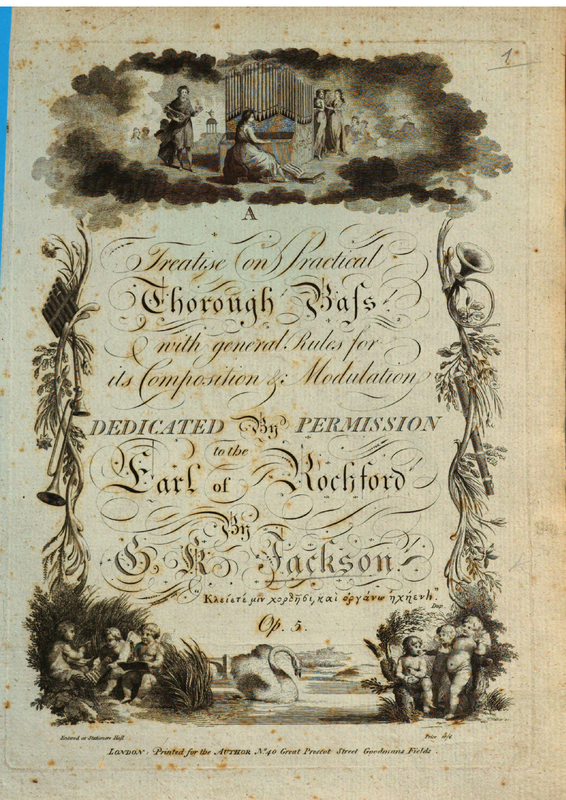 1
A
Treatise on Practical
Thorough Baſs
with general Rules for
its Composition & Modulation
DEDICATED By PERMISSION
to the
Earl of Rochford
By
G. K. Jackson.
"Κλείετέ μιν χορδῆσι, καὶ ὀργάνω ἠχήεντι."
Op. 5.
Entered at Stationers Hall
Price
LONDON: Printed for the AUTHOR No. 40 Great Prescot Street Goodmans Fields.